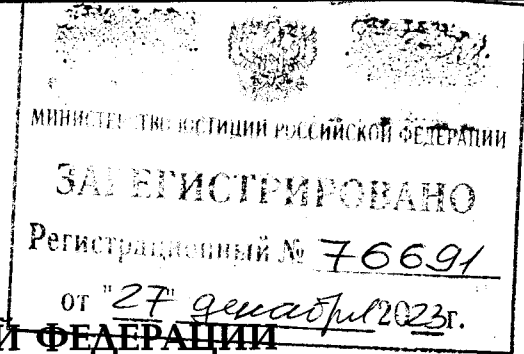 МИНИСТЕРСТВО ЮСТИЦИИ РОССИЙСКОЙ ФЕДЕРАЦИИ
ЗАРЕГИСТРИРОВАНО
Регистрационный № 76691
от "27" декабря 2023г.
Й ФЕДЕРАЦИИ